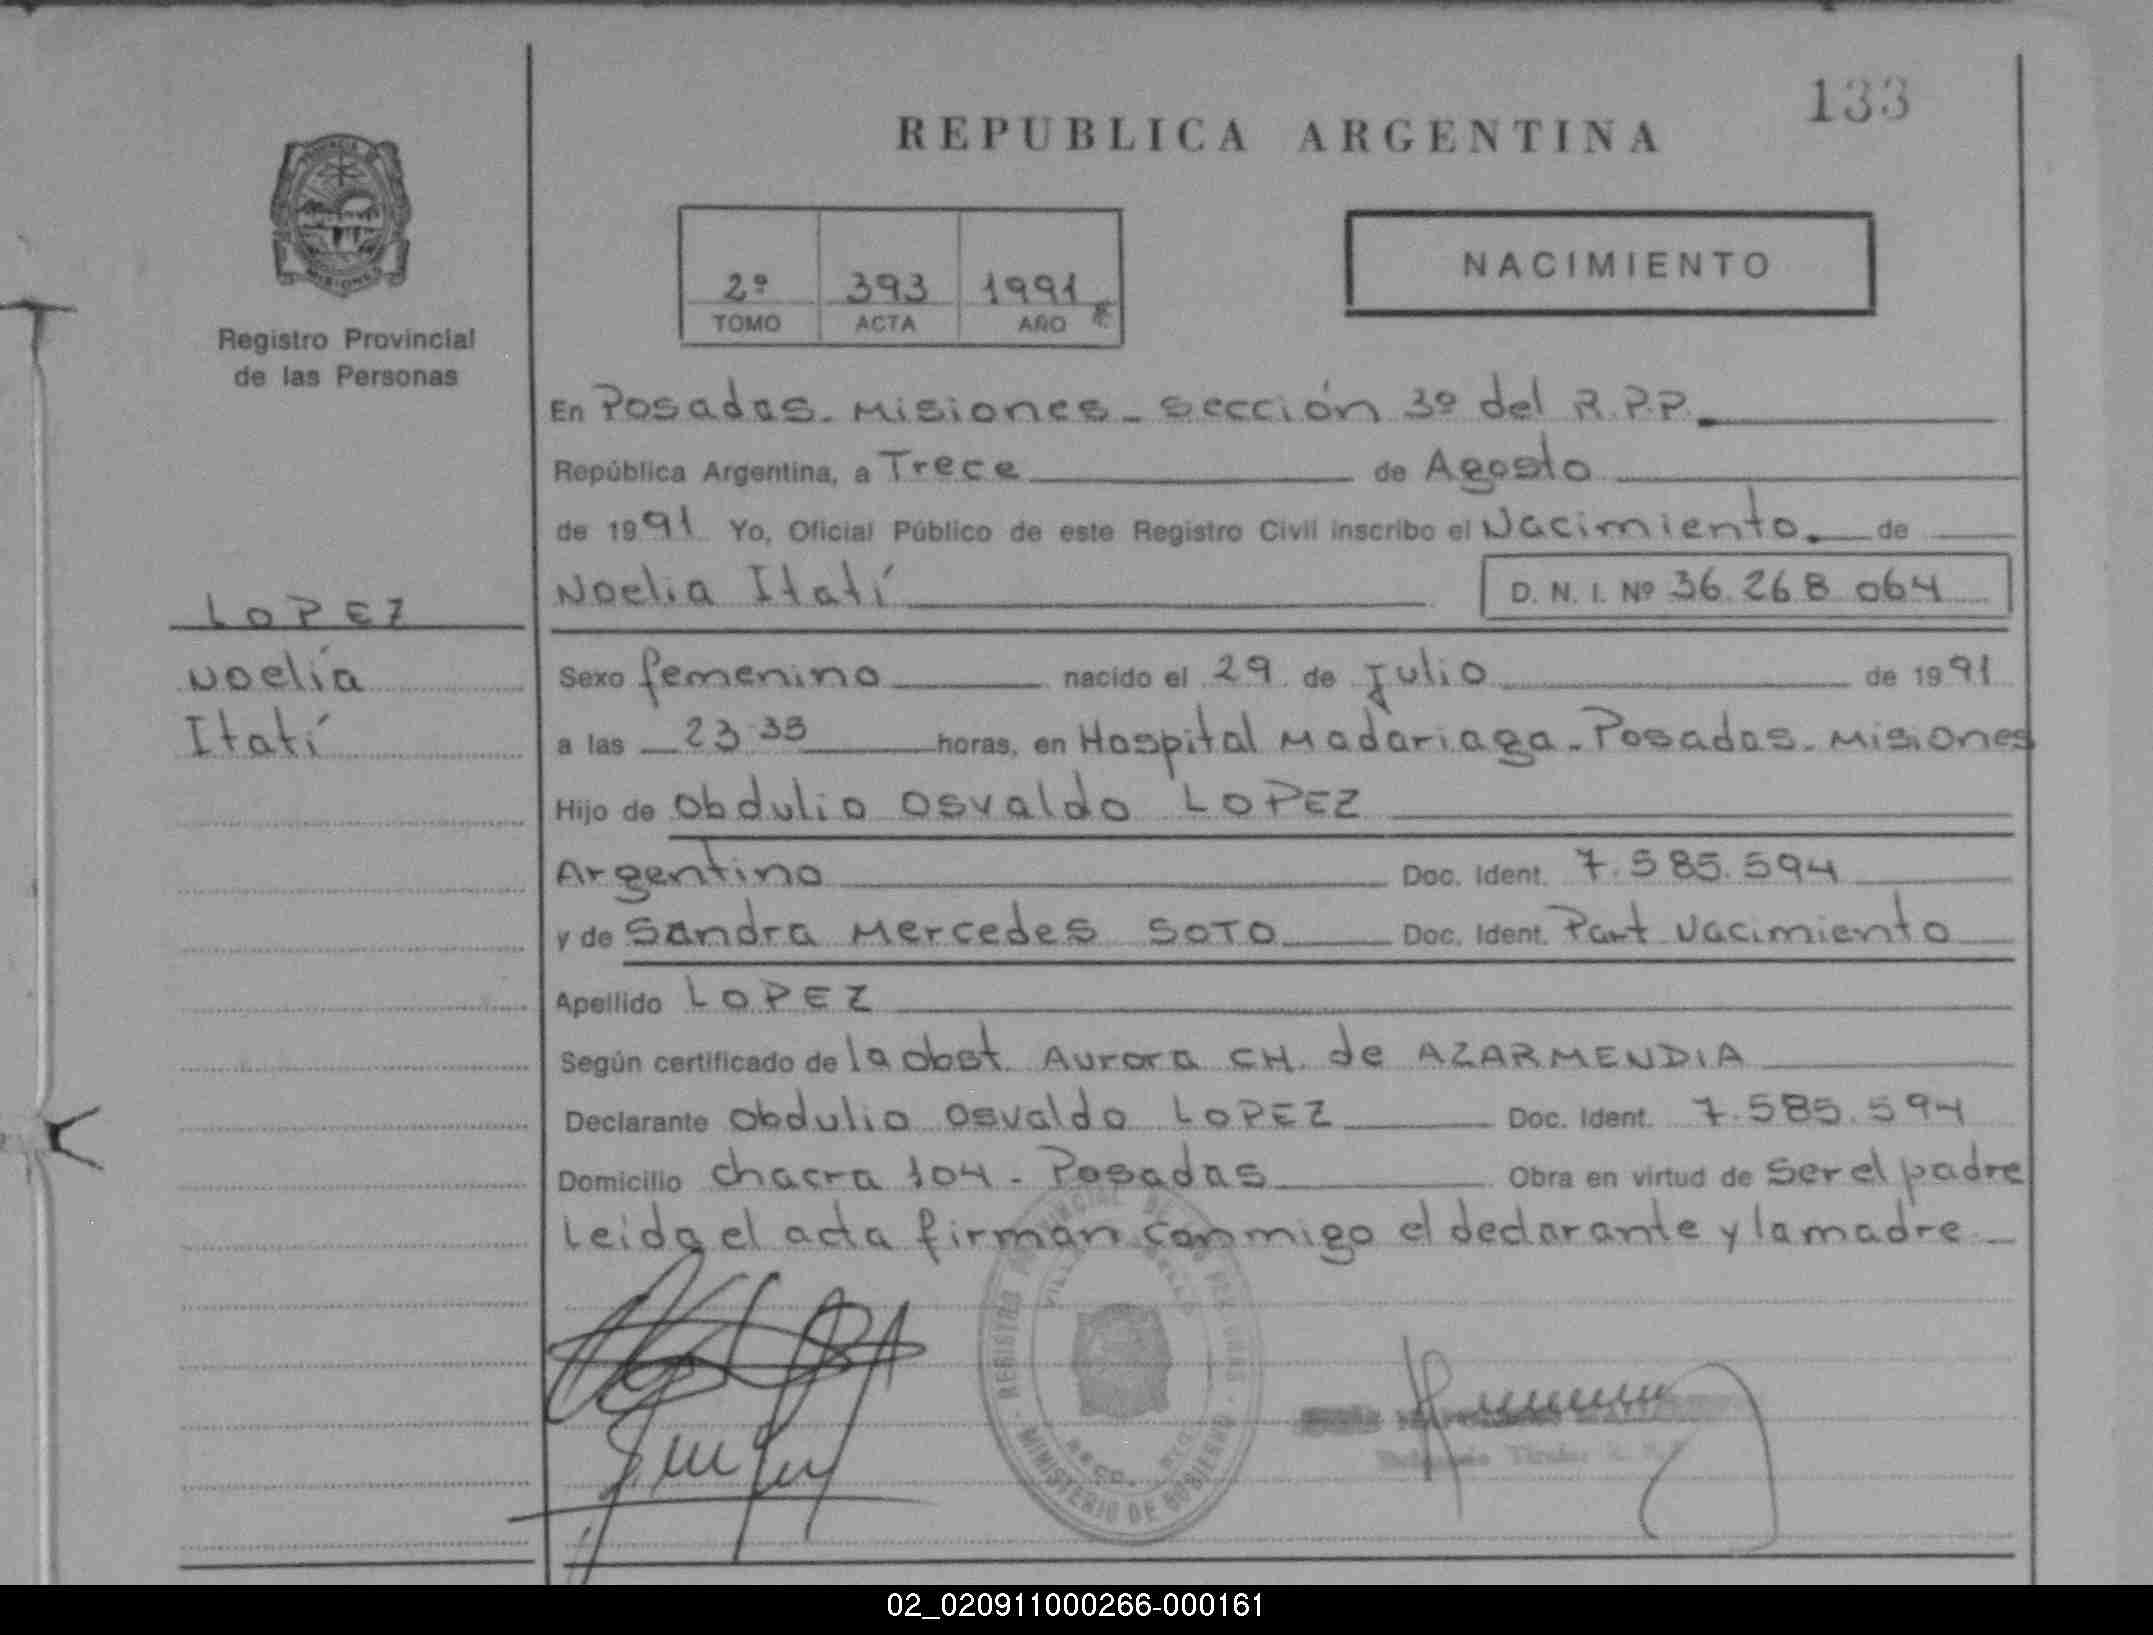 133
REPUBLICA ARGENTINA
Registro Provincial
de las Personas
2º 393 1991
TOMO ACTA AÑO
NACIMIENTO
En Posadas - Misiones - sección 3º del R.P.P.
República Argentina, a Trece de Agosto
de 1991 Yo, Oficial Público de este Registro Civil inscribo el Nacimiento. de
Noelia Itatí D. N. I. Nº 36.268.064
LOPEZ
Noelía
Itatí
Sexo femenino nacido el 29 de Julio de 1991
a las 23 35 horas, en Hospital Madariaga - Posadas - Misiones
Hijo de Obdulio Osvaldo LOPEZ
Argentino Doc. Ident. 7.585.594
y de Sandra Mercedes SOTO Doc. Ident. Part Nacimiento
Apellido LOPEZ
Según certificado de la obst. Aurora CH. de AZARMENDIA
Declarante Obdulio Osvaldo LOPEZ Doc. Ident. 7.585.594
Domicilio chacra 104 - Posadas Obra en virtud de ser el padre
Leida el acta firman conmigo el declarante y la madre
REGISTRO PROVINCIAL DE LAS PERSONAS
MINISTERIO DE GOBIERNO
02_020911000266-000161